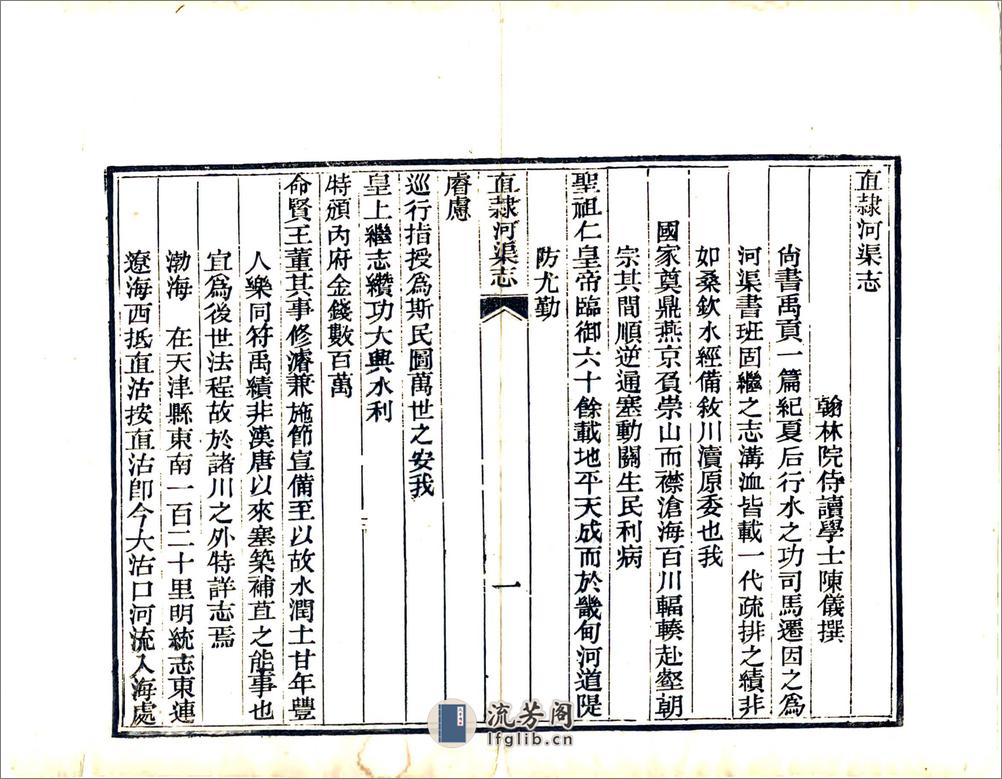 直隷河渠志
翰林院侍讀學士陳儀撰
尙書禹貢一篇紀夏后行水之功司馬遷因之爲
河渠書班固繼之志溝洫皆載一代疏排之績非
如桑欽水經備敘川瀆原委也我
國家奠鼎燕京負崇山而襟滄海百川輻輳赴壑朝
宗其間順逆通塞動關生民利病
聖祖仁皇帝臨御六十餘載地平天成而於畿甸河道隄
防尤勤
直隷河渠志
一
睿慮
巡行指授爲斯民圖萬世之安我
皇上繼志纘功大興水利
特頒內府金錢數百萬
命賢王董其事修濬兼施節宣備至以故水潤土甘年豐
人樂同符禹績非漢唐以來塞築補苴之能事也
宜爲後世法程故於諸川之外特詳志焉
渤海 在天津縣東南一百二十里明統志東連
遼海西抵直沽按直沽卽今大沽口河流入海處
流芳阁
lfglib.cn